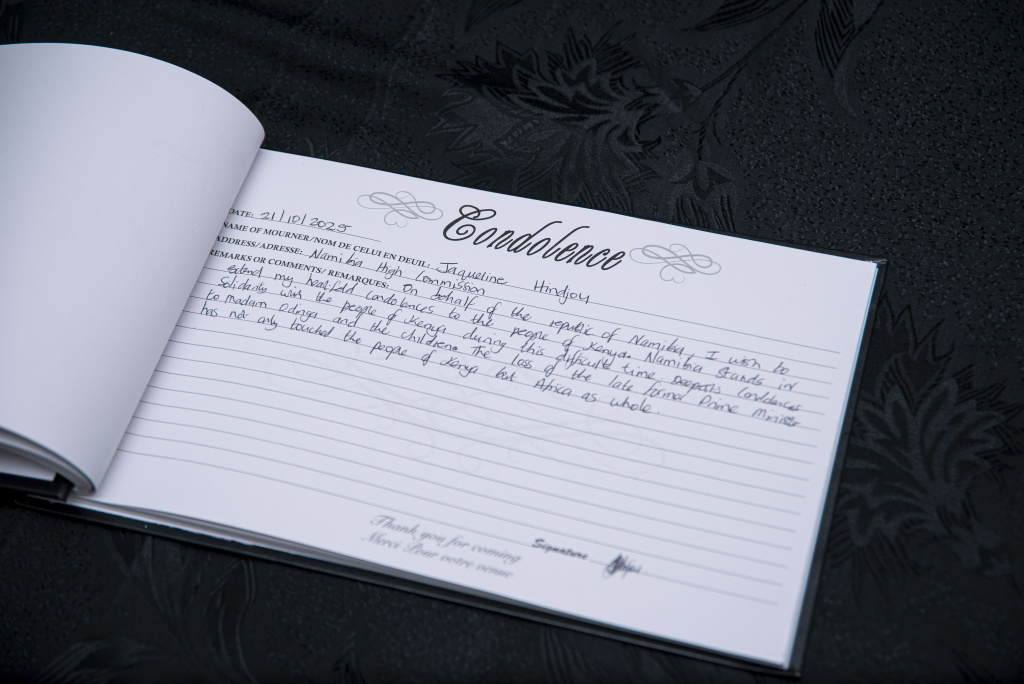 Condolence
DATE: 21/10/2025
NAME OF MOURNER/NOM DE CELUI EN DEUIL: Jaqueline Hindjou
ADDRESS/ADRESSE: Namibia High Commission
REMARKS OR COMMENTS/ REMARQUES: On behalf of the republic of Namibia, I wish to
extend my heartfeld condolences to the people of Kenya. Namibia stands in
Solidarity with the people of Kenya during this difficult time. Deepests Condolences
to madam Odinga and the children. The loss of the late former Prime Minister
has not only touched the people of Kenya but Africa as whole.
Thank you for coming
Merci Pour votre venue
Signature